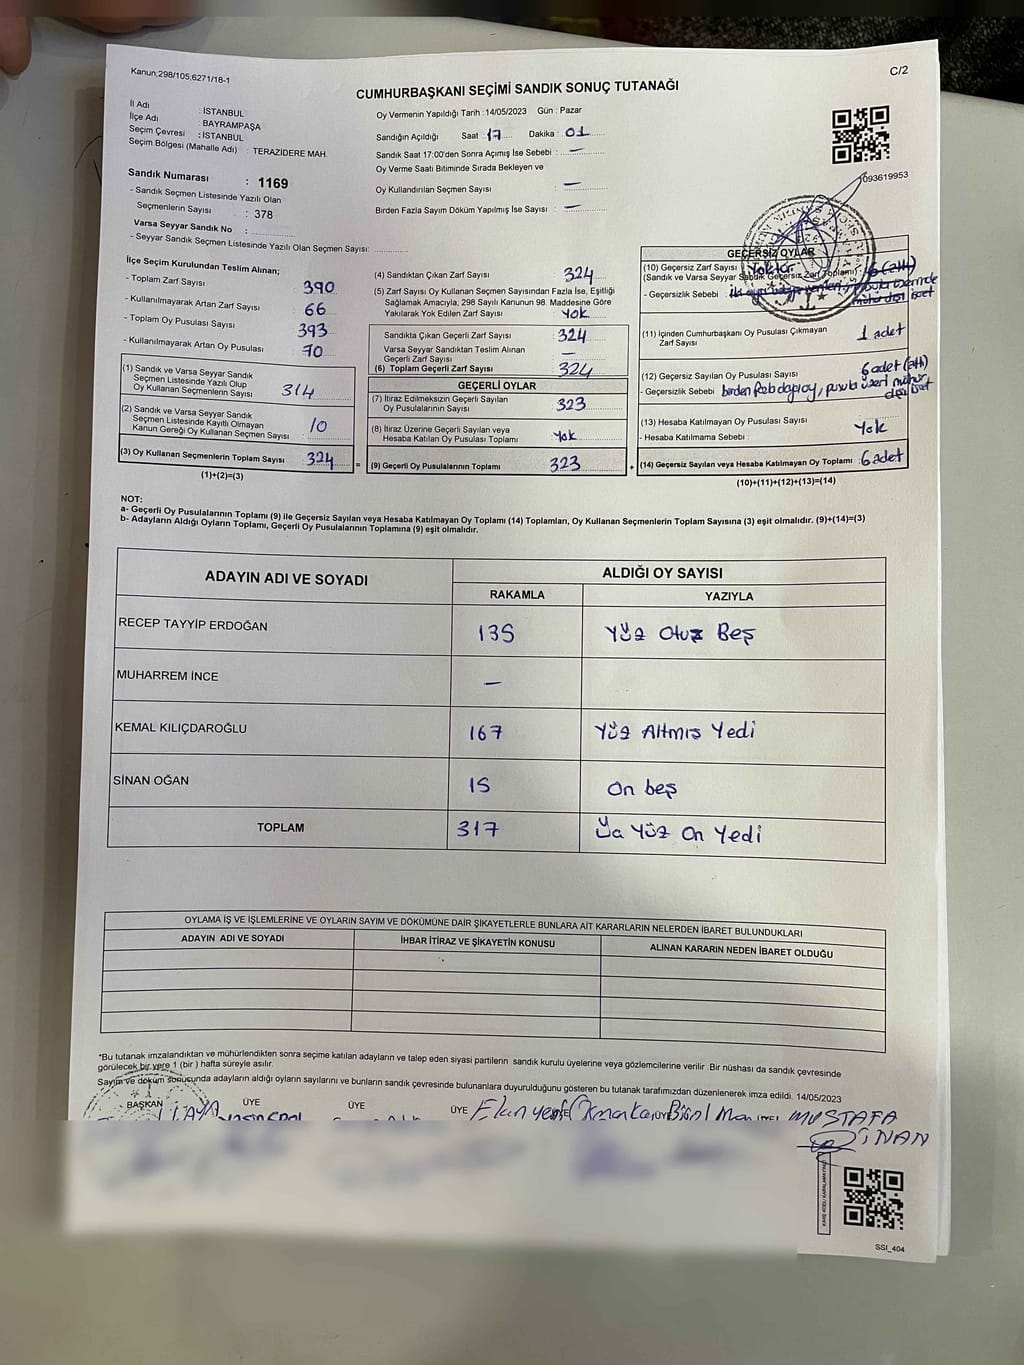 Kanun,298/105,6271/18-1
C/2
CUMHURBAŞKANI SEÇİMİ SANDIK SONUÇ TUTANAĞI
İl Adı : İSTANBUL
İlçe Adı : BAYRAMPAŞA
Seçim Çevresi : İSTANBUL
Seçim Bölgesi (Mahalle Adı) : TERAZİDERE MAH.
Sandık Numarası : 1169
- Sandık Seçmen Listesinde Yazılı Olan
Seçmenlerin Sayısı : 378
Varsa Seyyar Sandık No :
- Seyyar Sandık Seçmen Listesinde Yazılı Olan Seçmen Sayısı:
Oy Vermenin Yapıldığı Tarih :14/05/2023 Gün : Pazar
Sandığın Açıldığı Saat 17 Dakika : 01
Sandık Saat 17:00'den Sonra Açımış İse Sebebi : —
Oy Verme Saati Bitiminde Sırada Bekleyen ve
Oy Kullandırılan Seçmen Sayısı : —
Birden Fazla Sayım Döküm Yapılmış İse Sayısı : —
093619953
İlçe Seçim Kurulundan Teslim Alınan;
- Toplam Zarf Sayısı 390
- Kullanılmayarak Artan Zarf Sayısı 66
- Toplam Oy Pusulası Sayısı 393
- Kullanılmayarak Artan Oy Pusulası 70
(1) Sandık ve Varsa Seyyar Sandık
Seçmen Listesinde Yazılı Olup
Oy Kullanan Seçmenlerin Sayısı 314
(2) Sandık ve Varsa Seyyar Sandık
Seçmen Listesinde Kayıtlı Olmayan
Kanun Gereği Oy Kullanan Seçmen Sayısı 10
(3) Oy Kullanan Seçmenlerin Toplam Sayısı 324
(1)+(2)=(3)
(4) Sandıktan Çıkan Zarf Sayısı 324
(5) Zarf Sayısı Oy Kullanan Seçmen Sayısından Fazla İse, Eşitliği
Sağlamak Amacıyla, 298 Sayılı Kanunun 98. Maddesine Göre
Yakılarak Yok Edilen Zarf Sayısı Yok
Sandıkta Çıkan Geçerli Zarf Sayısı 324
Varsa Seyyar Sandıktan Teslim Alınan
Geçerli Zarf Sayısı —
(6) Toplam Geçerli Zarf Sayısı 324
GEÇERLİ OYLAR
(7) İtiraz Edilmeksizin Geçerli Sayılan
Oy Pusulalarının Sayısı 323
(8) İtiraz Üzerine Geçerli Sayılan veya
Hesaba Katılan Oy Pusulası Toplamı Yok
= (9) Geçerli Oy Pusulalarının Toplamı 323
GEÇERSİZ OYLAR
(10) Geçersiz Zarf Sayısı Yoktur
(Sandık ve Varsa Seyyar Sandık Geçersiz Zarf Toplamı) 6 (altı)
- Geçersizlik Sebebi :
(11) İçinden Cumhurbaşkanı Oy Pusulası Çıkmayan
Zarf Sayısı 1 adet
(12) Geçersiz Sayılan Oy Pusulası Sayısı 6 adet (altı)
- Geçersizlik Sebebi birden fazla oy, pusula üzeri mühür
(13) Hesaba Katılmayan Oy Pusulası Sayısı Yok
- Hesaba Katılmama Sebebi :
+ (14) Geçersiz Sayılan veya Hesaba Katılmayan Oy Toplamı : 6 adet
(10)+(11)+(12)+(13)=(14)
NOT:
a- Geçerli Oy Pusulalarının Toplamı (9) ile Geçersiz Sayılan veya Hesaba Katılmayan Oy Toplamı (14) Toplamları, Oy Kullanan Seçmenlerin Toplam Sayısına (3) eşit olmalıdır. (9)+(14)=(3)
b- Adayların Aldığı Oyların Toplamı, Geçerli Oy Pusulalarının Toplamına (9) eşit olmalıdır.
ADAYIN ADI VE SOYADI
ALDIĞI OY SAYISI
RAKAMLA YAZIYLA
RECEP TAYYİP ERDOĞAN 135 Yüz Otuz Beş
MUHARREM İNCE —
KEMAL KILIÇDAROĞLU 167 Yüz Altmış Yedi
SİNAN OĞAN 15 On beş
TOPLAM 317 Üç Yüz On Yedi
OYLAMA İŞ VE İŞLEMLERİNE VE OYLARIN SAYIM VE DÖKÜMÜNE DAİR ŞİKAYETLERLE BUNLARA AİT KARARLARIN NELERDEN İBARET BULUNDUKLARI
ADAYIN ADI VE SOYADI İHBAR İTİRAZ VE ŞİKAYETİN KONUSU ALINAN KARARIN NEDEN İBARET OLDUĞU
*Bu tutanak imzalandıktan ve mühürlendikten sonra seçime katılan adayların ve talep eden siyasi partilerin sandık kurulu üyelerine veya gözlemcilerine verilir .Bir nüshası da sandık çevresinde
görülecek bir yere 1 (bir ) hafta süreyle asılır.
Sayım ve döküm sonucunda adayların aldığı oyların sayılarını ve bunların sandık çevresinde bulunanlara duyurulduğunu gösteren bu tutanak tarafımızdan düzenlenerek imza edildi. 14/05/2023
BAŞKAN ÜYE ÜYE ÜYE MUSTAFA
İNAN
SSI_404